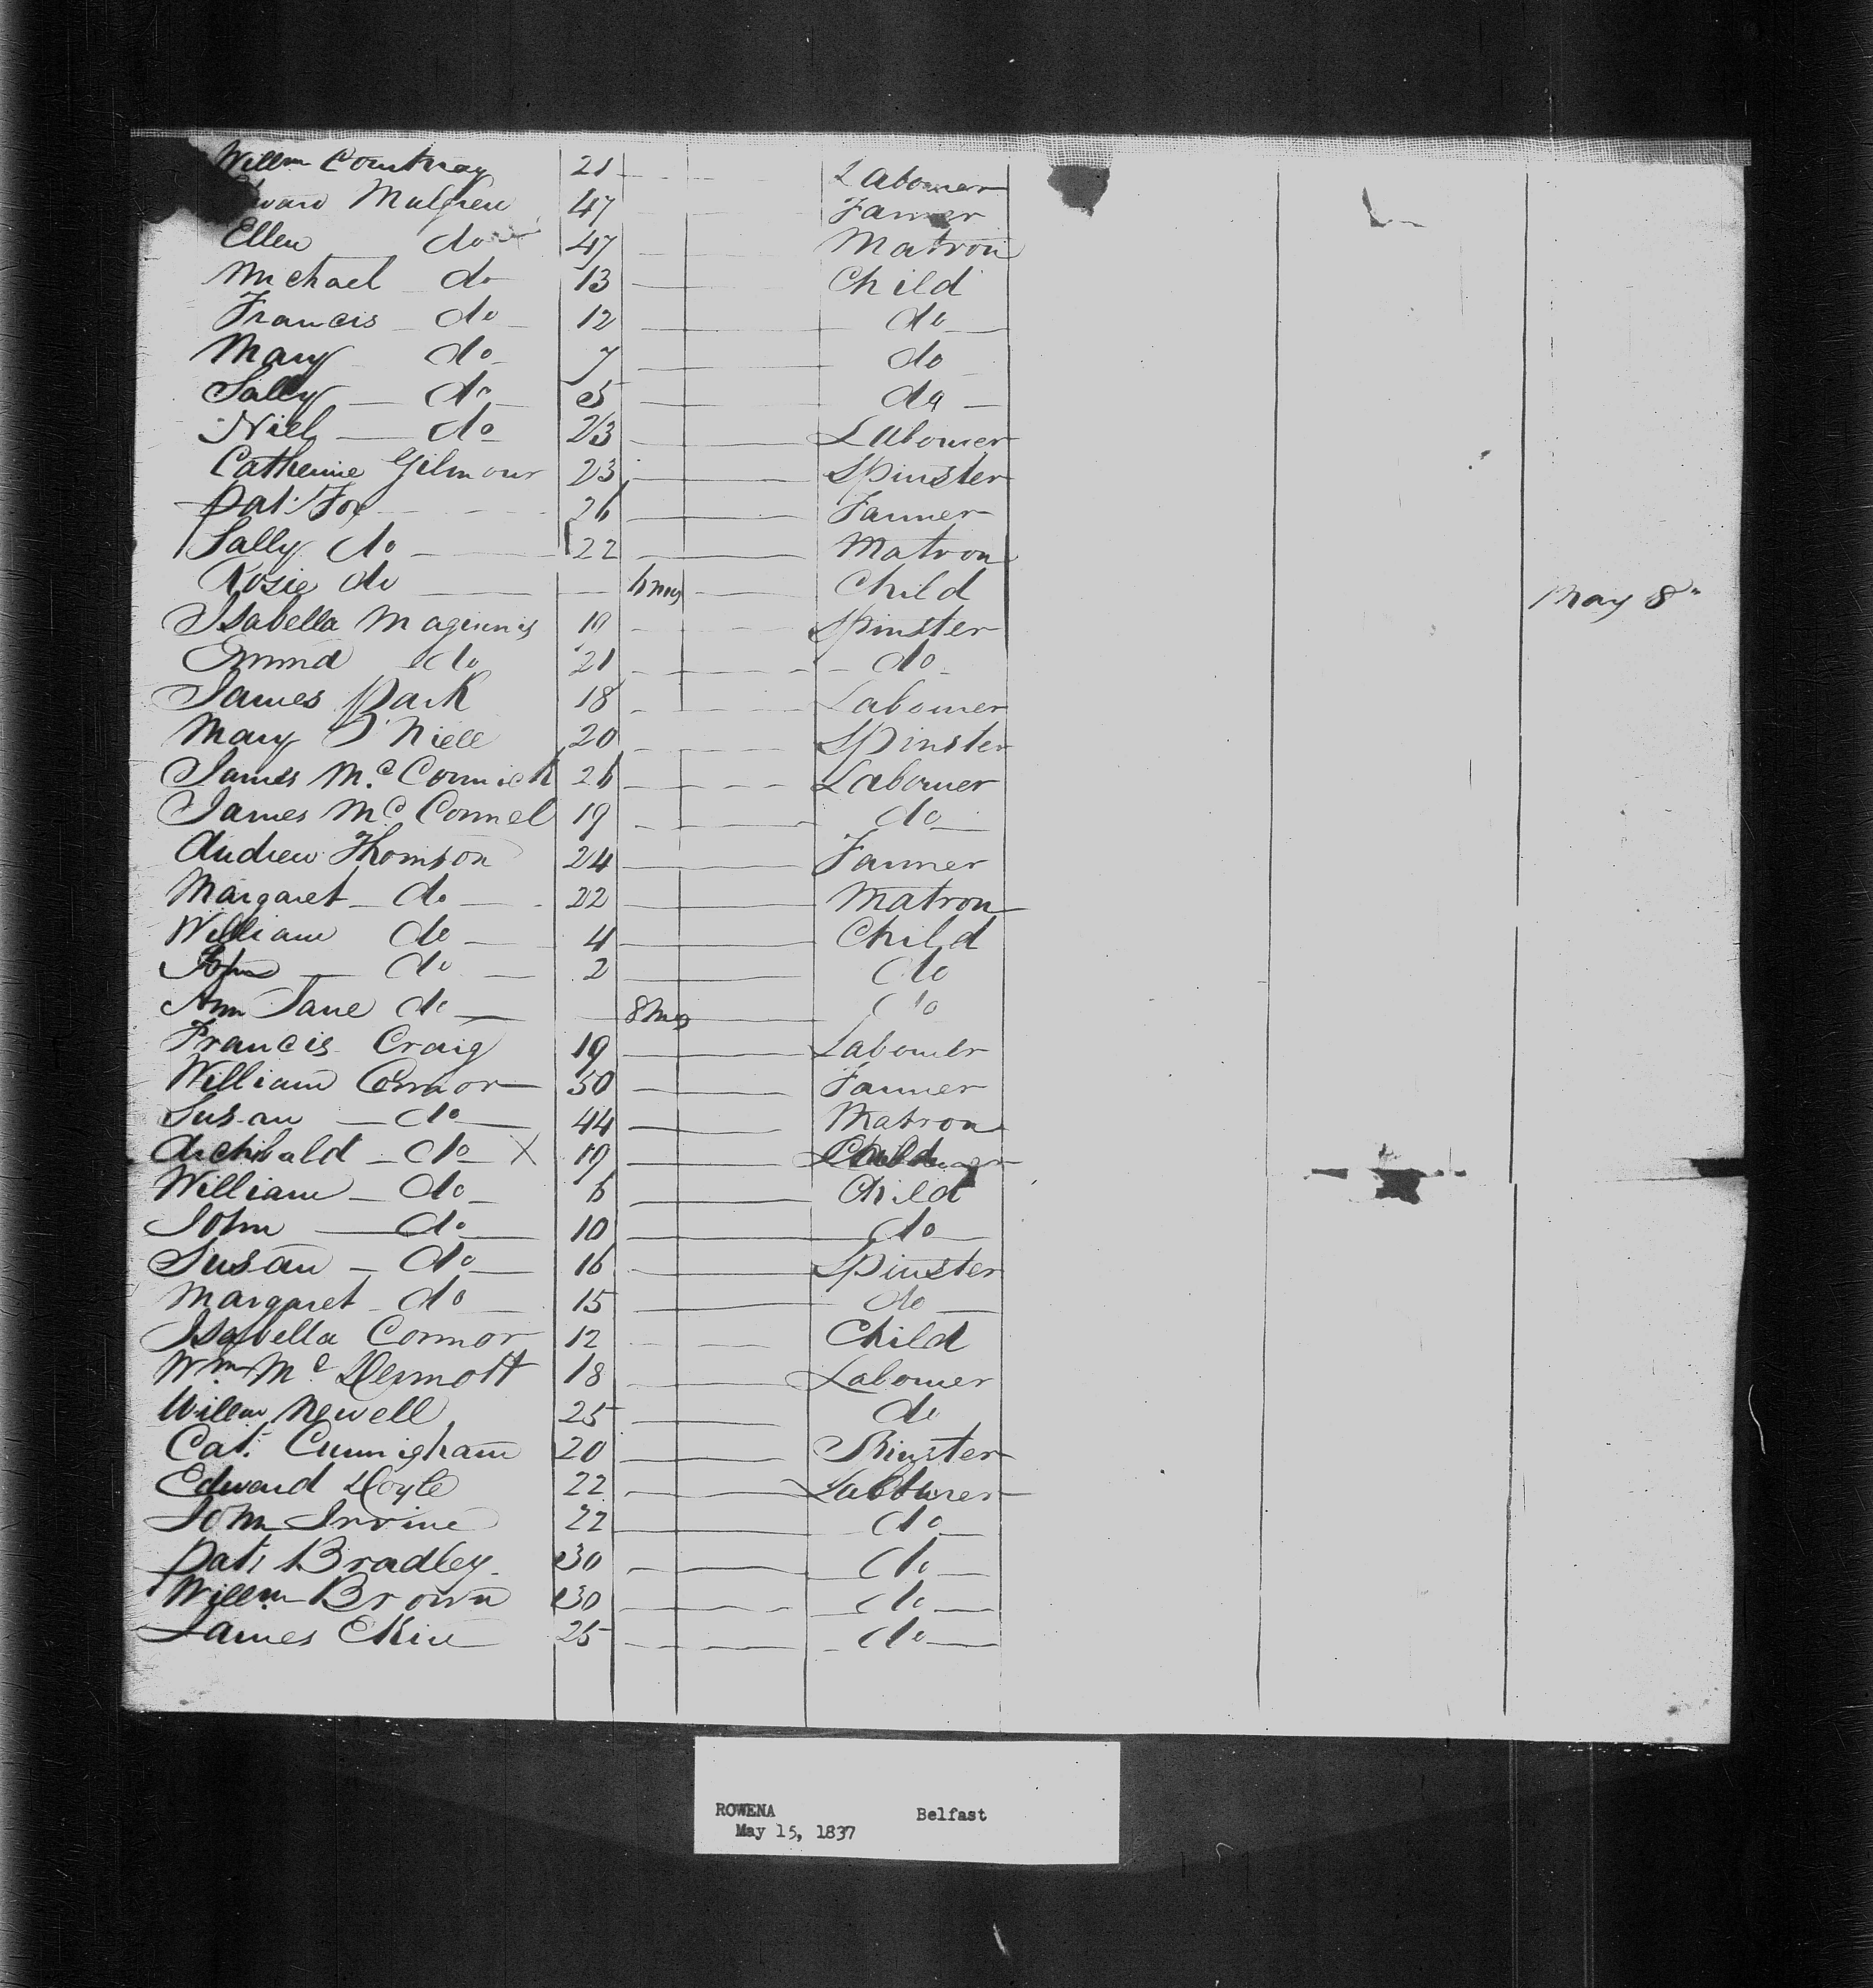 Willm Courtnay 21 Labourer
47 Farmer
Ellen do 47 Matron
Michael do 13 Child
Francis do 12 do
Mary do 7 do
Sally do 5 do
Niel do 23 Labourer
Catherine Gilmour 23 Spinster
Pat. Fox 26 Farmer
Sally do 22 Matron
Rosie do 6 mos Child May 8th
Isabella Maginnis 19 Spinster
Emma do 21 do
James Park 18 Labourer
Mary O'Niell 20 Spinster
James McCormick 26 Labourer
James McConnel 19 do
Andrew Thomson 24 Farmer
Margaret do 22 Matron
William do 4 Child
John do 2 do
Ann Jane do 8 mos do
Francis Craig 19 Labourer
William Connor 50 Farmer
Susan do 44 Matron
Archibald do X 19
William do 6 Child
John do 10 do
Susan do 16 Spinster
Margaret do 15 do
Isabella Connor 12 Child
Wm McDermott 18 Labourer
Willm Newell 25 do
Cat. Cunnigham 20 Spinster
Edward Doyle 22 Labourer
John Irvine 22 do
Pat. Bradley 30 do
Willm Brown 30 do
James Ekin 25 do
ROWENA Belfast
May 15, 1837